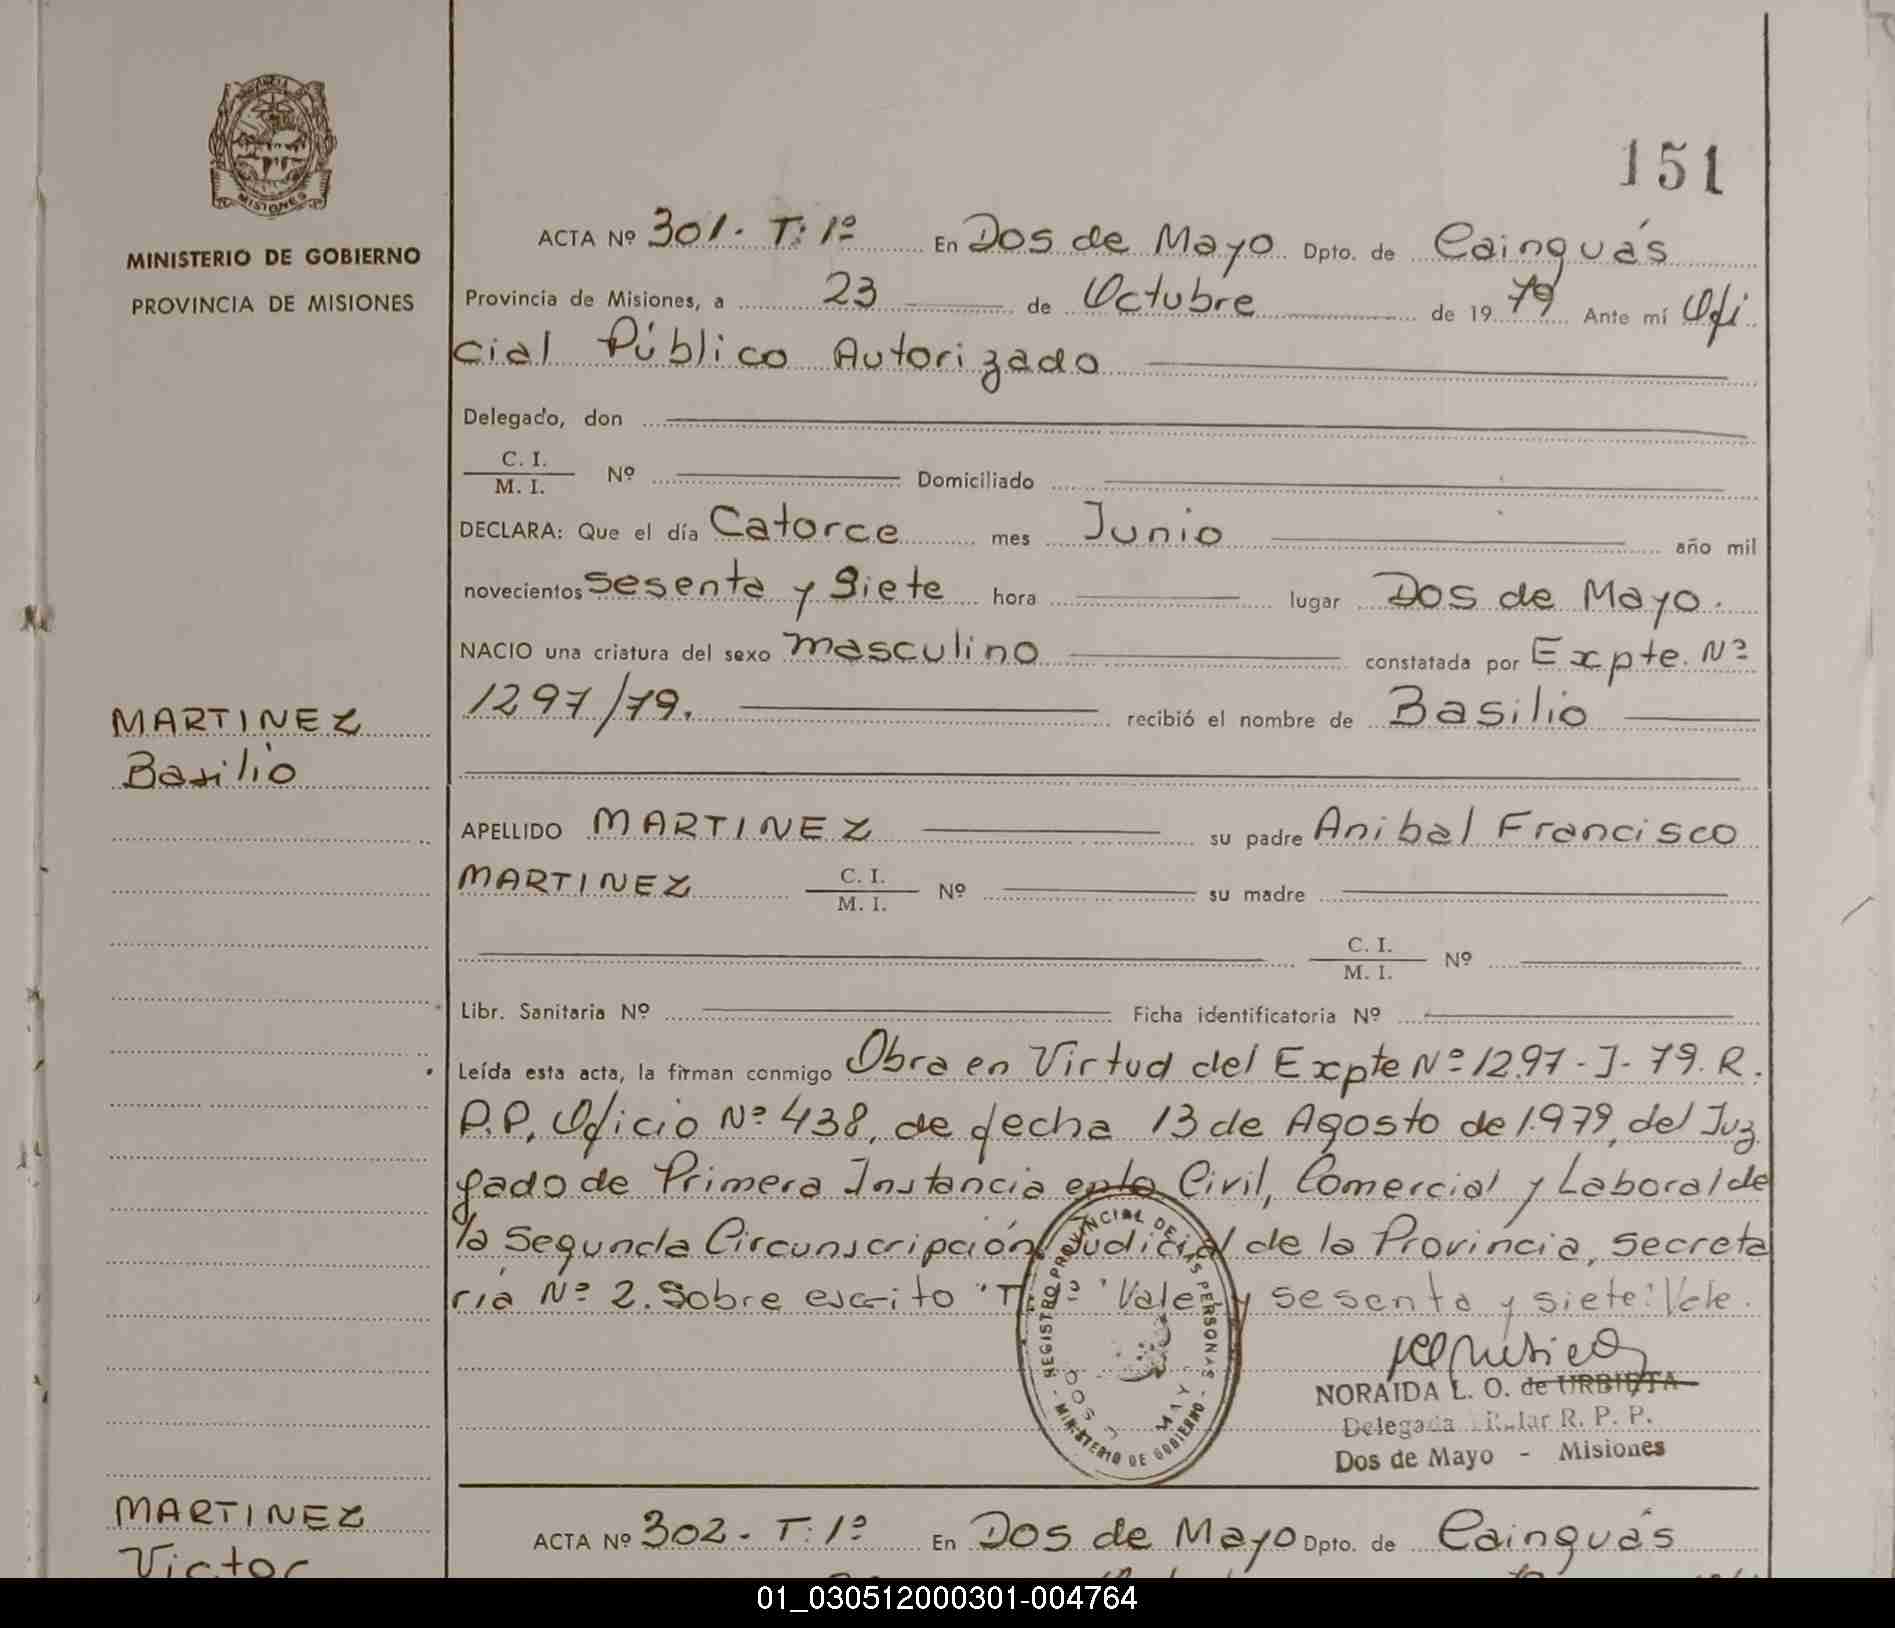 151
MISIONES
MINISTERIO DE GOBIERNO
PROVINCIA DE MISIONES
ACTA Nº 301. T: 1º En Dos de Mayo Dpto. de Cainguás
Provincia de Misiones, a 23 de Octubre de 1979 Ante mí Ofi
cial Público Autorizado
Delegado, don
C. I.
M. I. Nº Domiciliado
DECLARA: Que el día Catorce mes Junio año mil
novecientos sesenta y siete hora lugar Dos de Mayo.
NACIO una criatura del sexo masculino constatada por Expte. Nº
1297/79. recibió el nombre de Basilio
MARTINEZ
Basilio
APELLIDO MARTINEZ su padre Anibal Francisco
MARTINEZ C. I.
M. I. Nº su madre
C. I.
M. I. Nº
Libr. Sanitaria Nº Ficha identificatoria Nº
Leída esta acta, la firman conmigo Obra en Virtud del Expte Nº 1297-J-79. R.
P.P. Oficio Nº 438, de fecha 13 de Agosto de 1.979, del Juz
gado de Primera Instancia en lo Civil, Comercial y Laboral de
la Segunda Circunscripción Judicial de la Provincia, secreta
ría Nº 2. Sobre escrito "T: 1º" Vale y sesenta y siete: Vale.
REGISTRO PROVINCIAL DE LAS PERSONAS
MINISTERIO DE GOBIERNO
NORAIDA L. O. de URBIETA
Delegada R. P. P.
Dos de Mayo - Misiones
MARTINEZ
Victor
ACTA Nº 302. T: 1º En Dos de Mayo Dpto. de Cainguás
01_030512000301-004764